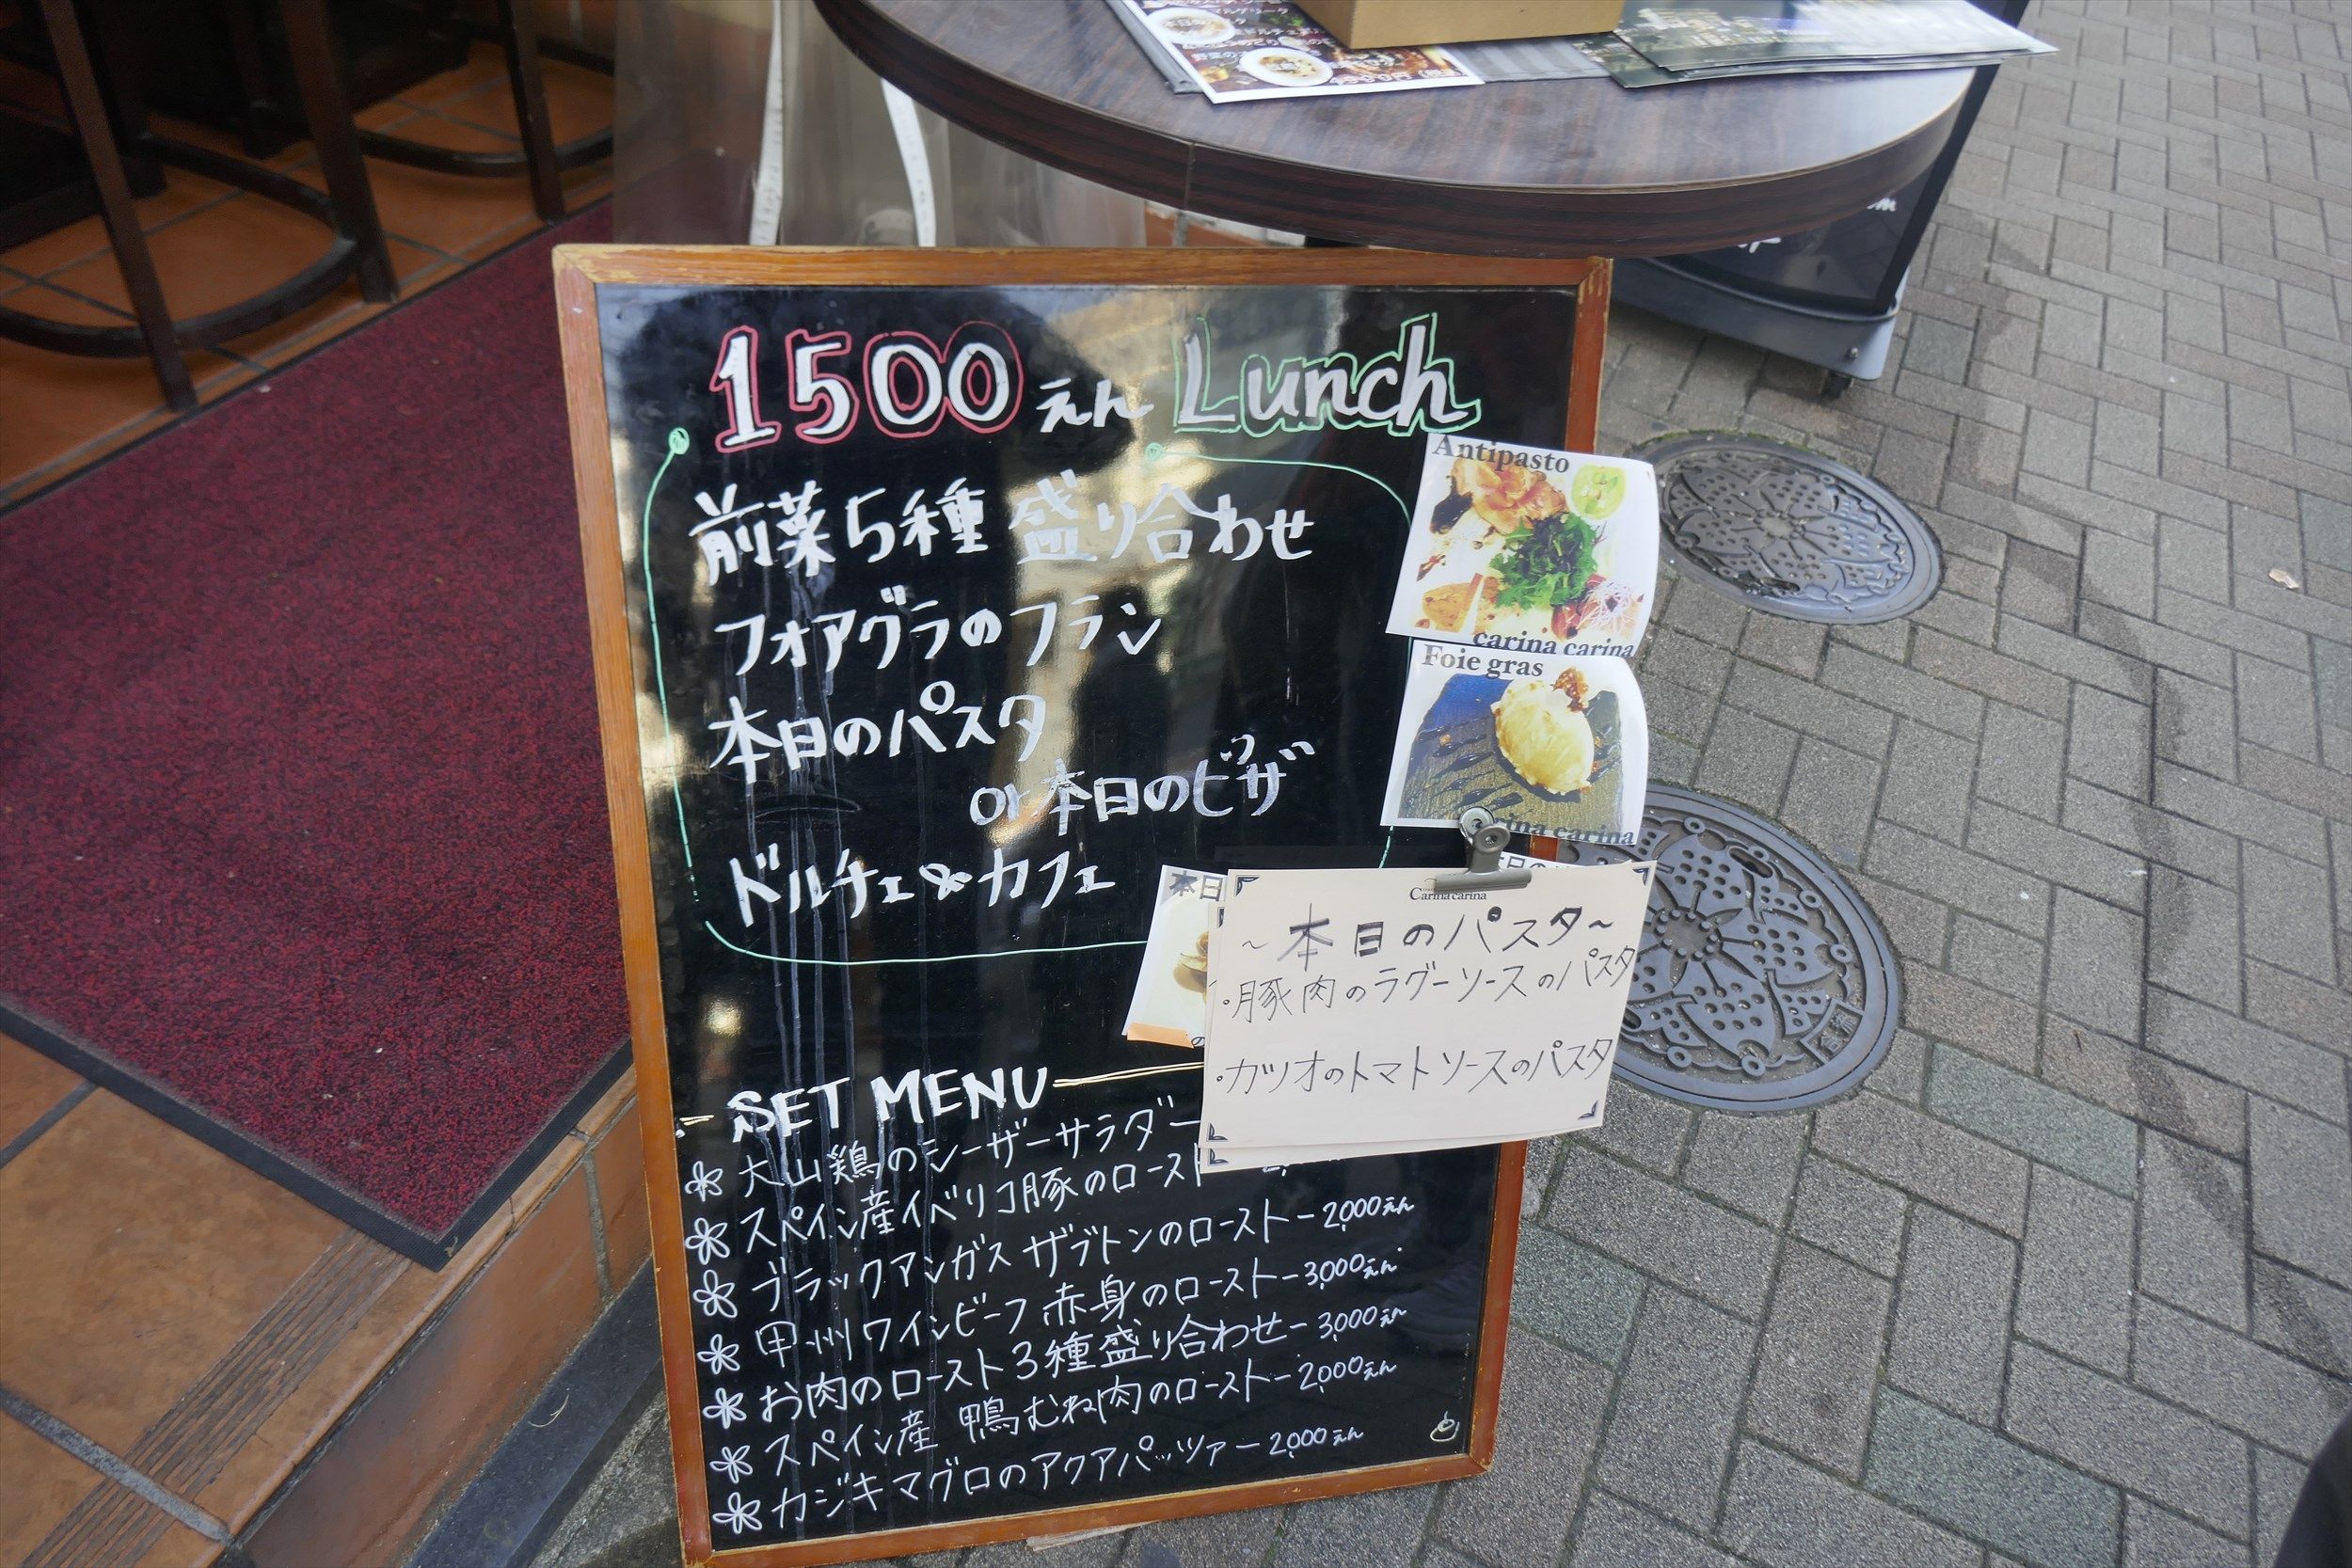 1500えん Lunch
前菜5種 盛り合わせ
フォアグラのフラン
本日のパスタ
or 本日のピッザ
ドルチェ&カフェ
Antipasto
carina carina
Foie gras
carina carina
本日
Carina carina
~本日のパスタ~
・豚肉のラグーソースのパスタ
・カツオのトマトソースのパスタ
SET MENU
大山鶏のシーザーサラダー
スペイン産イベリコ豚のロースト
ブラックアンガス ザブトンのローストー2,000えん
甲州ワインビーフ 赤身のローストー3,000えん
お肉のロースト3種盛り合わせー3,000えん
スペイン産 鴨むね肉のローストー2,000えん
カジキマグロのアクアパッツァー2,000えん